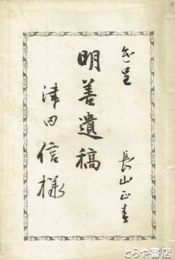 恵呈
長山正春
明善遺稿
津田信様
とらや書店